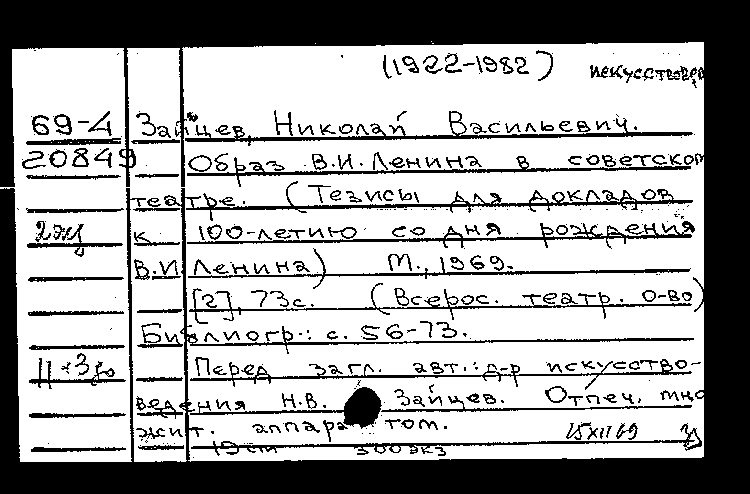 (1922-1982) искусствовед
69-4 Зайцев, Николай Васильевич.
20849 Образ В.И. Ленина в советском
театре. (Тезисы для докладов
2жц к 100-летию со дня рождения
В.И Ленина) М., 1969.
[2], 73с. (Всерос. театр. о-во)
Библиогр.: с. 56-73.
Перед загл. авт.: д-р искусство-
ведения Н.В. Зайцев. Отпеч. мно
жит. аппаратом. 15XII69
19 см 300экз